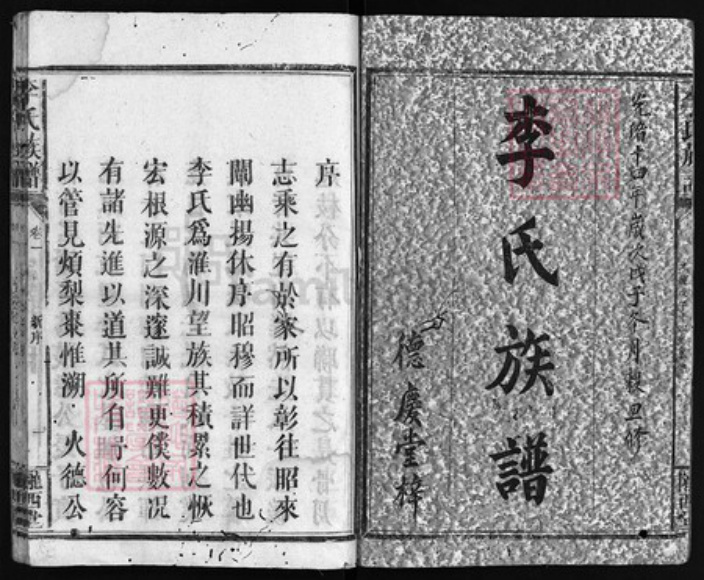 光緒十四年歲次戊子冬月穀旦修
李氏族譜
德慶堂梓
序
志乘之有於家所以彰往昭來
闡幽揚休序昭穆而詳世代也
李氏爲淮川望族其積累之恢
宏根源之深邃誠難更僕數况
有諸先進以道其所自昉何容
以管見煩梨棗惟溯 火德公
李氏族譜
卷一
新序
隴西堂